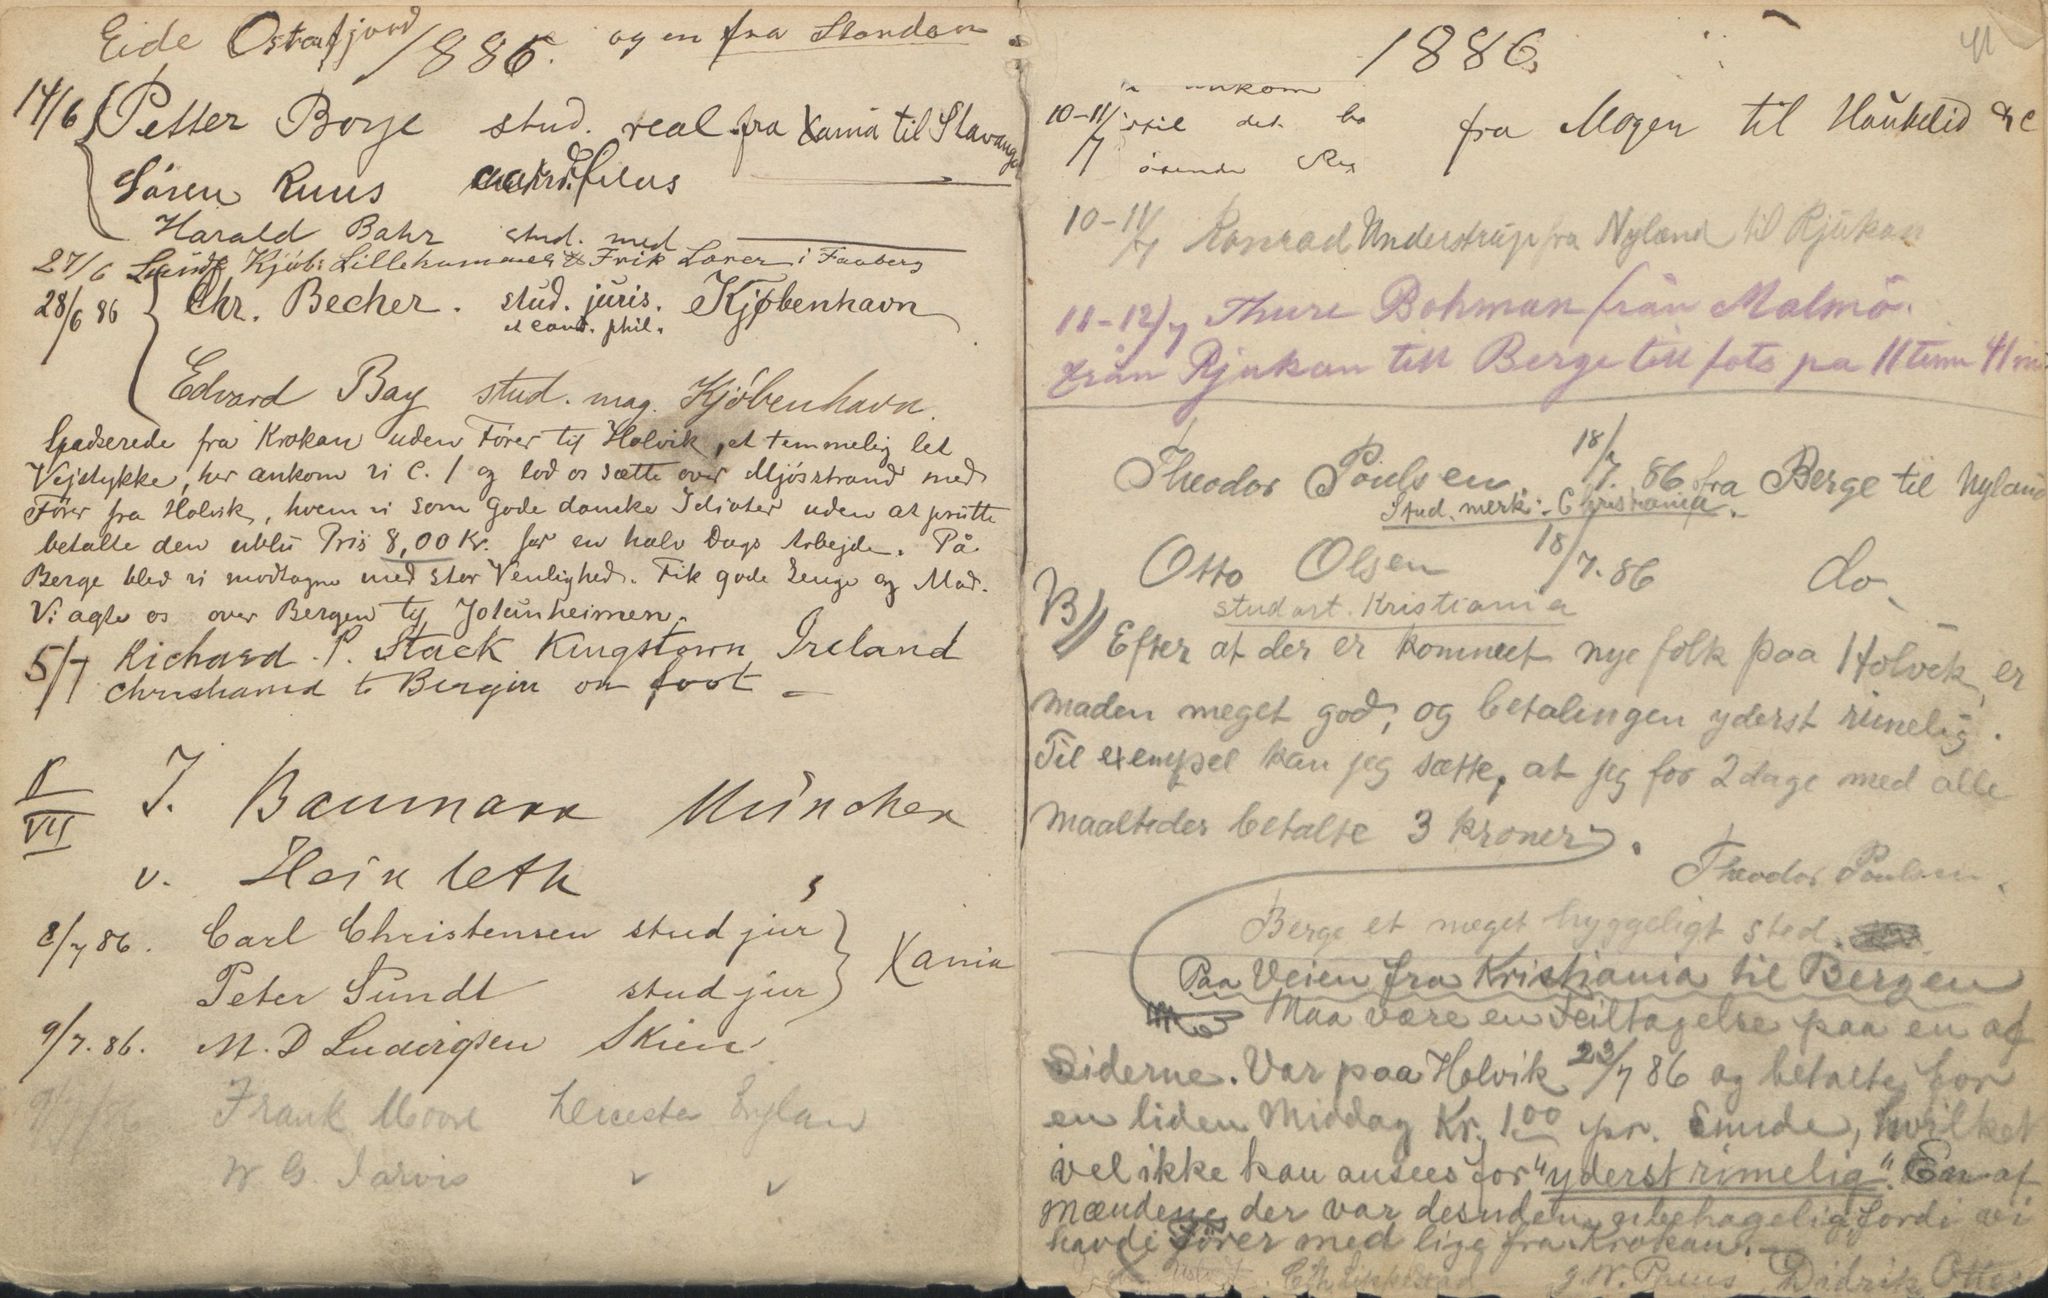 Eide Ostenfjord 1886. og en fra London
14/6 Petter Borge stud. real fra Xania til Stavanger
Sören Ruus
Harald Bahr stud. med
27/6 Kjöb: Lillehammer & Frik i Faaberg
28/6 86 Chr. Becher. stud. juris. Kjøbenhavn
et cand. phil.
Edvard Bay stud. mag. Kjöbenhavn.
Spadserede fra Krokan uden Fører til Holvik, et temmelig let
Vejstykke, her ankom vi c. 1 og lod os sætte over Mjösstrand med
Fører fra Holvik, hvem vi som gode danske Idioter uden at prutte
betalte den ublu Pris 8,00 Kr. for en halv Dags Arbejde. På
Berge blev vi modtagne med stor Venlighed. Fik gode Senge og Mad.
Vi agte os over Bergen til Jotunheimen.
5/7 Richard. P. Stack Kingstown Ireland
Christiania to Bergen on foot –
V/VII J. Baumann München
v. Heinleth "
8/7 86. Carl Christensen stud jur
Peter Sundt stud jur } Xania
9/7. 86. M. D Ludvigsen Skien
9/7/86 Frank Moore Leicester England
W G. Jarvis " "
1886.
ankom
10–11/7 til det fra Mogen til Haukelid &c
10–11/7 Konrad Understrup fra Nyland til Rjukan
11–12/7 Thure Bohman från Malmö.
från Rjukan till Berge till fots på 11 tim 41 min
Theodor Poulsen. 18/7. 86 fra Berge til Nyland
Stud. merk. Christiania.
Otto Olsen 18/7. 86 do.
stud art. Kristiania
NB) Efter at der er kommet nye folk paa Holvik, er
maden meget god, og betalingen yderst rimelig.
Til exempel kan jeg sætte, at jeg for 2 dage med alle
maaltider betalte 3 kroner.
Theodor Poulsen.
Berge et meget hyggeligt sted.
Paa Veien fra Kristiania til Bergen
Maa være en Feiltagelse paa en af
Siderne. Var paa Holvik 23/7 86 og betalte for
en liden Middag Kr. 1.00 pr. Snude, hvilket
vel ikke kan ansees for "yderst rimelig". En af
mændene der var desuden ubehagelig, fordi vi
havde Fører med lige fra Krokan.
Didrik